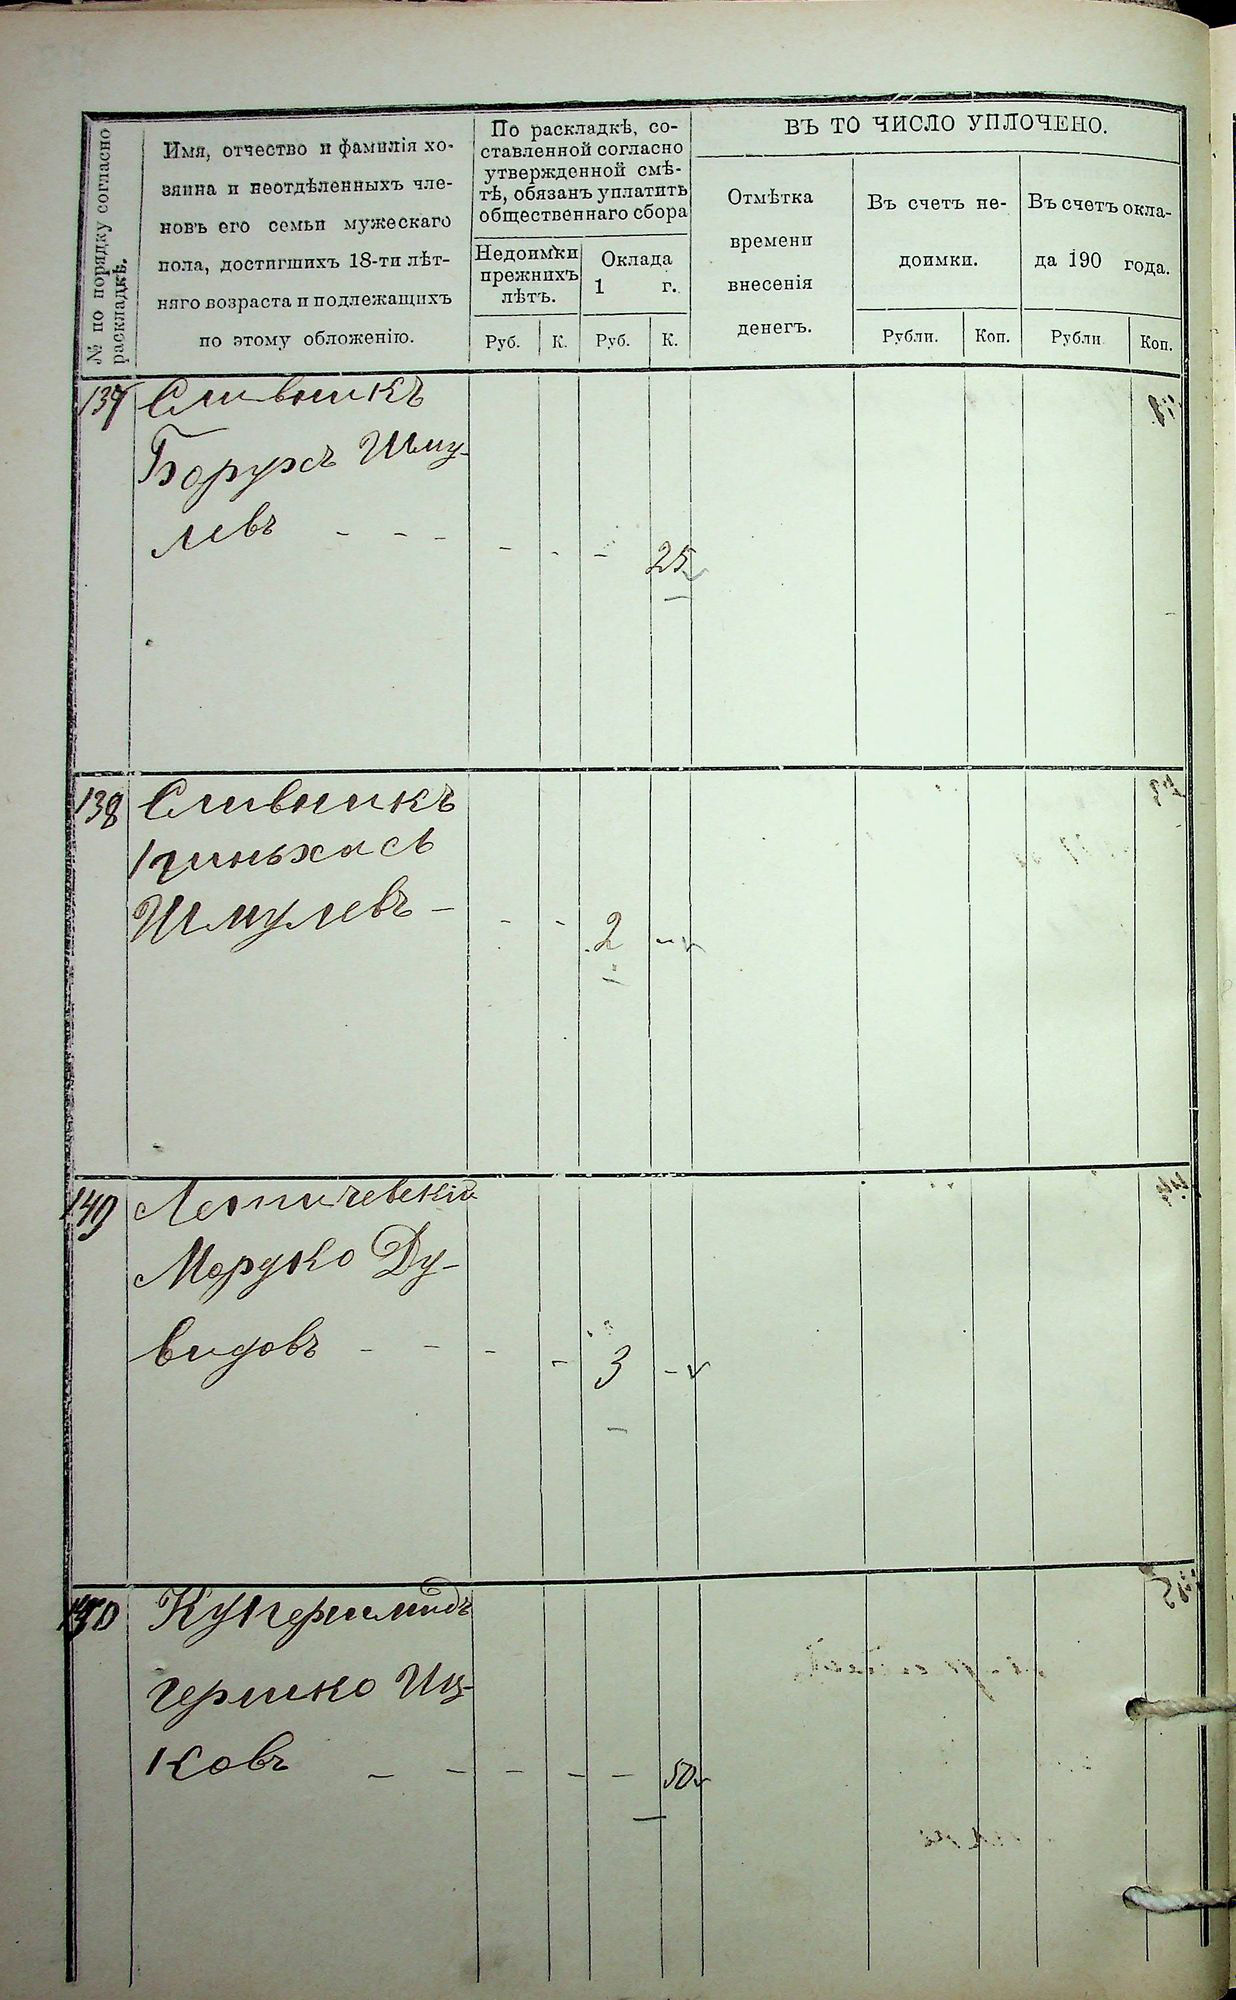 № по порядку согласно
раскладкѣ.
Имя, отчество и фамилія хо-
зяина и неотдѣленныхъ чле-
новъ его семьи мужескаго
пола, достигшихъ 18-ти лѣт-
няго возраста и подлежащихъ
по этому обложенію.
По раскладкѣ, со-
ставленной согласно
утвержденной смѣ-
тѣ, обязанъ уплатить
общественнаго сбора
Недоимки
прежнихъ
лѣтъ.
Оклада
1 г.
Руб. К. Руб. К.
ВЪ ТО ЧИСЛО УПЛОЧЕНО.
Отмѣтка
времени
внесенія
денегъ.
Въ счетъ не-
доимки.
Въ счетъ окла-
да 190 года.
Рубли. Коп. Рубли Коп.
137 Сливникъ
Борухъ Шму-
левъ - - - - - - 25
138 Сливникъ
Пиньхасъ
Шмулевъ - - - 2 -
149 Летичевскій
Мордко Ду-
видовъ - - - - 3 -
150 Купершмидъ
Гершко Иц-
ковъ - - - - - 50